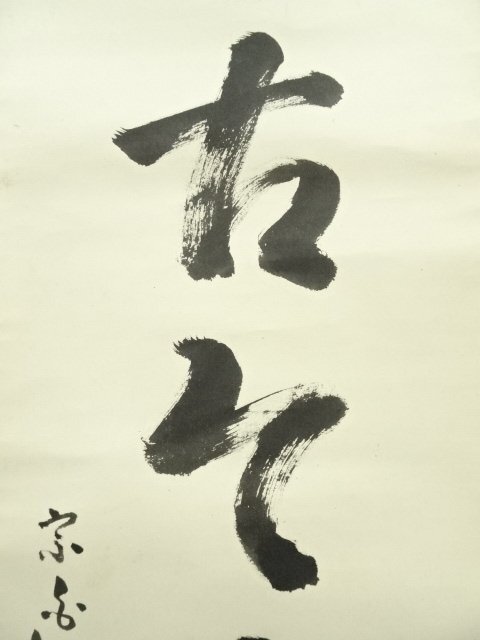 古今
宗